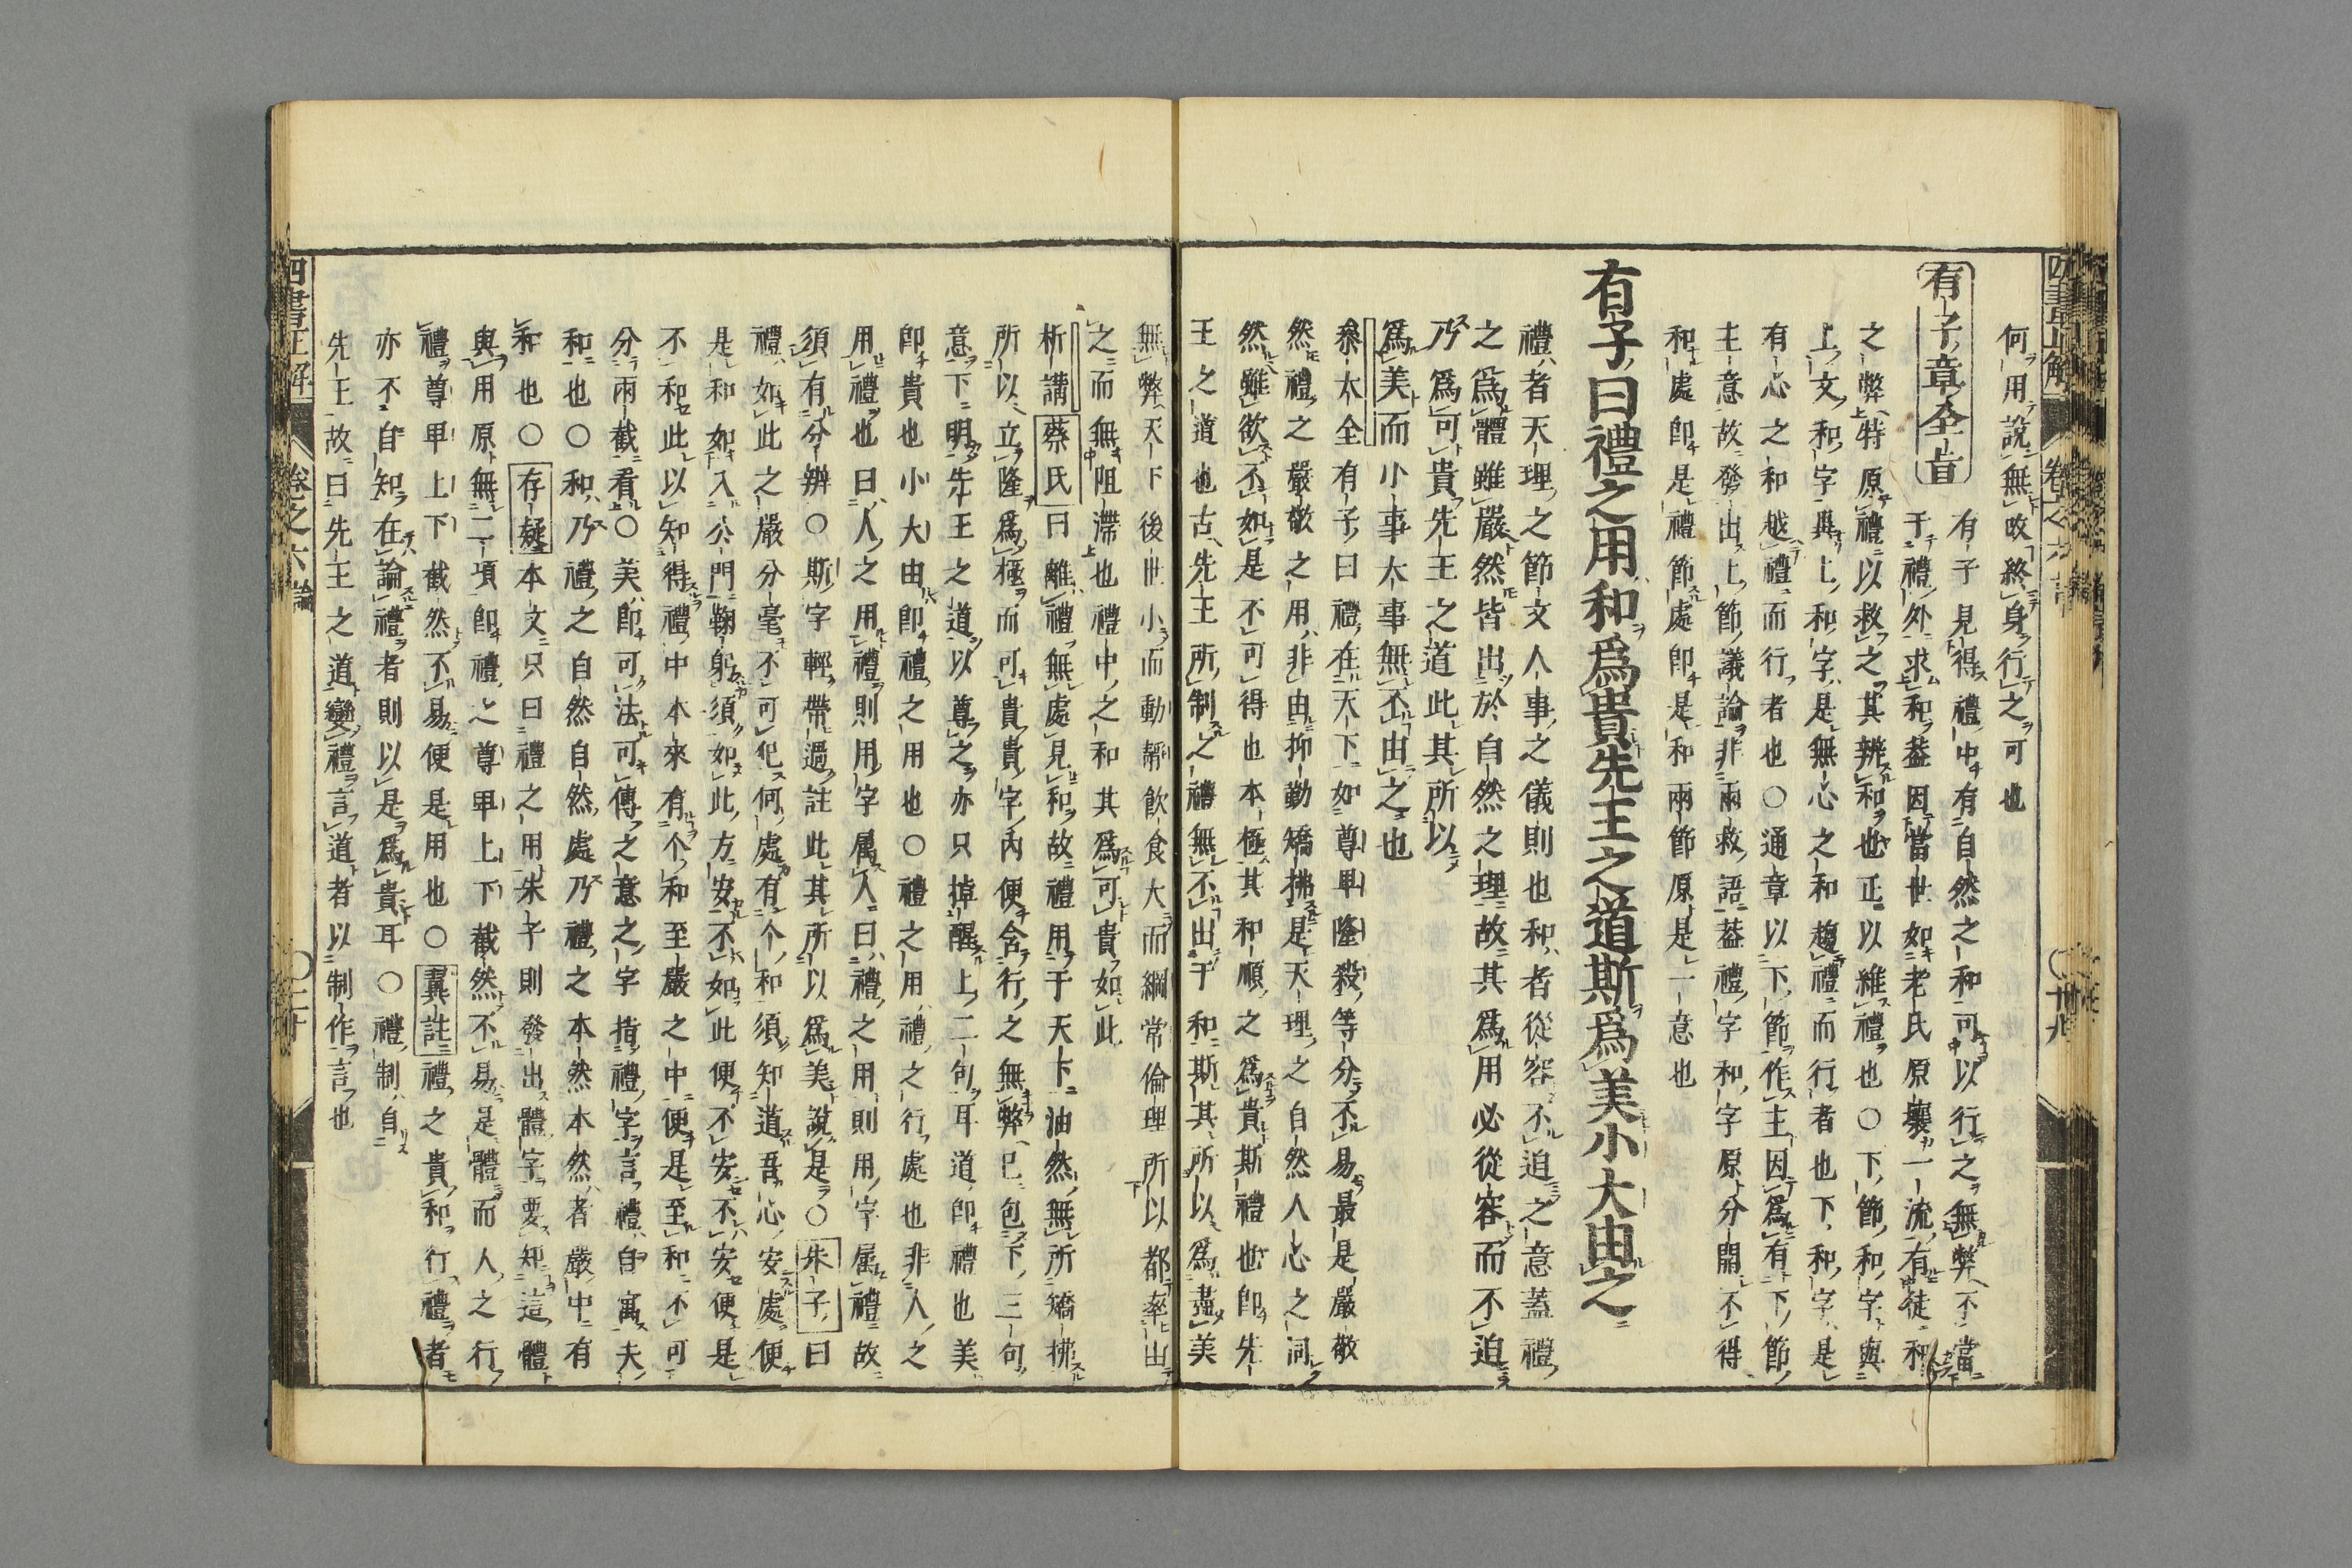 何用說無敗終身行之可也
有子章全旨
有子見得禮中有自然之和可以行之無弊不當
于禮外求和葢因當世如老氏原壤一流有徒和
之弊特原禮以救之其辨和也正以維禮也〇下節和字與
上文和字異上和字是無心之和趨禮而行者也下和字是
有心之和越禮而行者也〇通章以下節作主因爲有下節
主意故發出上節議論非兩救語葢禮字和字原分開不得
和處卽是禮節處卽是和兩節原是一意也
有子曰禮之用和爲貴先王之道斯爲美小大由之
禮者天理之節文人事之儀則也和者從容不迫之意蓋禮
之爲體雖嚴然皆出於自然之理故其爲用必從容而不迫
乃爲可貴先王之道此其所以
爲美而小事大事無不由之也
叅大全有子曰禮在天下如尊卑隆殺等分不易最是嚴敬
然禮之嚴敬之用非由抑勤矯拂是天理之自然人心之詞
然雖欲不如是不可得也本極其和順之爲貴斯禮也卽先
王之道也古先王所制之禮無不出于和斯其所以爲盡美
無弊天下後世小而動靜飮食大而綱常倫理所以都率由
之而無阻滯也禮中之和其爲可貴如此
析講蔡氏曰離禮無處見和故禮用于天下油然無所矯拂
所以立隆爲極而可貴貴字內便含行之無弊已包下三句
意下明先王之道以尊之亦只掉醒上二句耳道卽禮也美
卽貴也小大由卽禮之用也〇禮之用禮之行處也非人之
用禮也曰人之用禮則用字属人曰禮之用則用字属禮故
須有分辨〇斯字輕帶過註此其所以爲美說是〇朱子曰
禮如此之嚴分毫不可犯何處有个和須知道吾心安處便
是和如入公門鞠躬須如此方安不如此便不安不安便是
不和此以知得禮中本來有个和至嚴之中便是至和不可
分兩截看〇美卽可法可傳之意之字指禮字言禮自寓夫
和也〇和乃禮之自然自然處乃禮之本然本然者嚴中有
和也〇存疑本文只曰禮之用朱子則發出體字要知這體
與用原無二項卽禮之尊卑上下截然不易是體而人之行
禮尊卑上下截然不易便是用也〇翼註禮之貴和行禮者
亦不自知在論禮者則以是爲貴耳〇禮制自
先王故曰先王之道變禮言道者以制作言也
四書正解 卷之六論 〇三十
四書正解 卷之六論 〇廿九